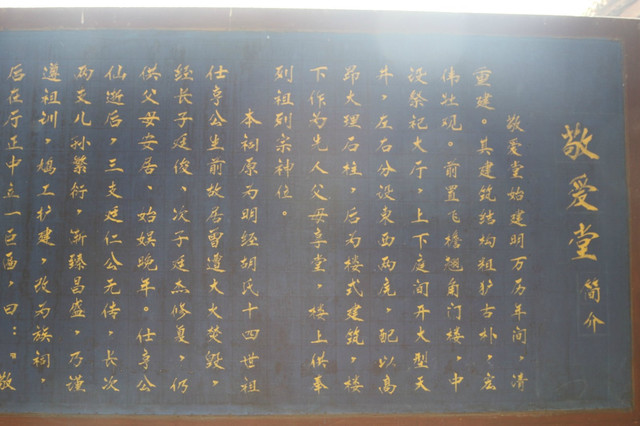 敬爱堂简介
敬爱堂始建明万历年间，清
重建。其建筑结构粗犷古朴，宏
伟壮观。前置飞檐翘角门楼，中
设祭祀大厅，上下庭间开大型天
井，左右分设东西两庑，配以高
昂大理石柱，后为楼式建筑，楼
下作为先人父母享堂，楼上供奉
列祖列宗神位。
本初原为明经胡氏十四世祖
仕亨公生前故居曾遭大火焚毁，
经长子廷俊、次子廷杰修复，仍
供父母安居、始娱晚年。仕亨公
仙逝后，三支廷仁公元传，长次
两支儿孙繁衍，渐臻昌盛，乃谨
遵祖训，鸠工扩建，改为族祠，
后在厅正中立一巨匾，曰：“敬